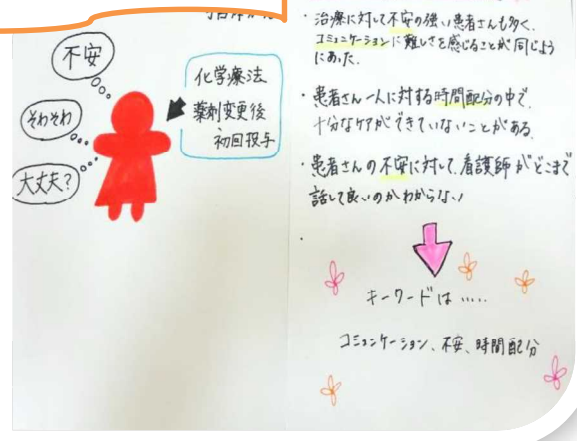 不安
そわそわ
大丈夫?
化学療法
薬剤変更後
初回投与
・治療に対して不安の強い患者さんも多く、
コミュニケーションに難しさを感じることが同じよう
にあった。
・患者さん一人に対する時間配分の中で、
十分なケアができていないことがある。
・患者さんの不安に対して、看護師がどこまで
話して良いのかわからない
・
キーワードは.....
コミュニケーション、不安、時間配分